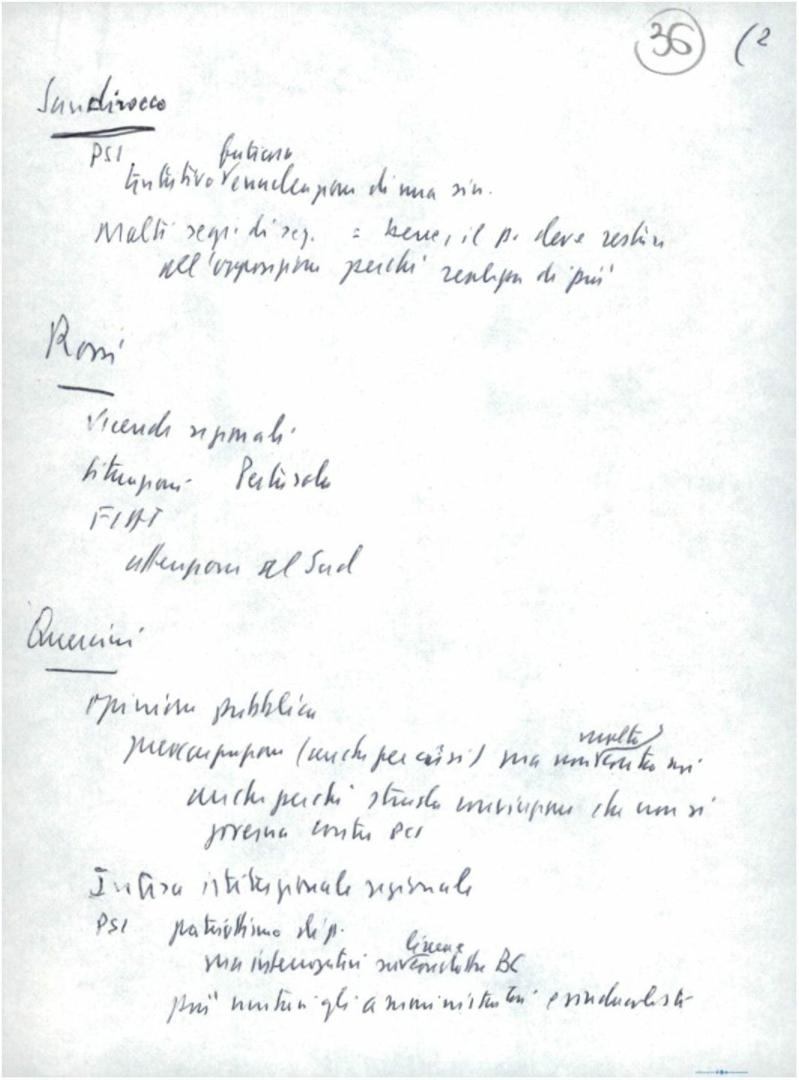 36 (2
Sandirocco
PSI faticosa
tentativo emulazione di una sin.
Molti segr. di sez. = bene, il p. deve restare
all'opposizione perché realizza di più
Rossi
vicende regionali
situazioni Pertusola
FIAT
attenzione al Sud
Quercini
opinione pubblica
preoccupazione (anche per crisi) ma non molta
anche perché strada convinzione che non si
governa contro PCI
Intesa istituzionale regionale
PSI patriottismo di p.
ma interrogativi su linea condotta BC
più contrari gli amministratori e sindacalisti